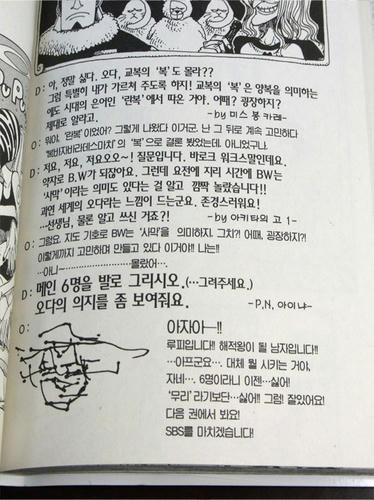 D: 아, 정말 싫다. 오다, 교복의 '복'도 몰라??
그럼 특별히 내가 가르쳐 주도록 하지! 교복의 '복'은 양복을 의미하는
에도 시대의 은어인 '란복'에서 따온 거야. 어때? 굉장하지?
제대로 알라고. -by 미스 봉 카레-
O: 뭐야, '란복'이었어? 그렇게 나왔다 이거군. 난 그 뒤로 계속 고민하다
'의 '복'으로 결론 봤었는데. 아니었구나.
D: 저요, 저요, 저요오오~! 질문입니다. 바로크 워크스말인데요.
약자로 B.W가 되잖아요. 그런데 요전에 지리 시간에 BW는
'사막'이라는 의미도 있다는 걸 알고 깜짝 놀랐습니다!!
과연 세계의 오다라는 느낌이 드는군요. 존경스러워요!
...선생님, 물론 알고 쓰신 거죠?! -by 아키타의 고 1-
O: 그럼요. 지도 기호로 BW는 '사막'을 의미하지. 그치?! 어때, 굉장하지?!
이렇게까지 고민하며 만들고 있다 이거야!! 나는!!
...아니~..................몰랐어...
D: 메인 6명을 발로 그리시오. (...그려주세요.)
오다의 의지를 좀 보여줘요. -P.N. 아이냐-
O: 아자아-!!
루피입니다!! 해적왕이 될 남자입니다!!
...아프군요... 대체 뭘 시키는 거야,
자네... 6명이라니 이젠...싫어!
'무리'라기보단...싫어!! 그럼! 잘있어요!
다음 권에서 봐요!
SBS를 마치겠습니다!